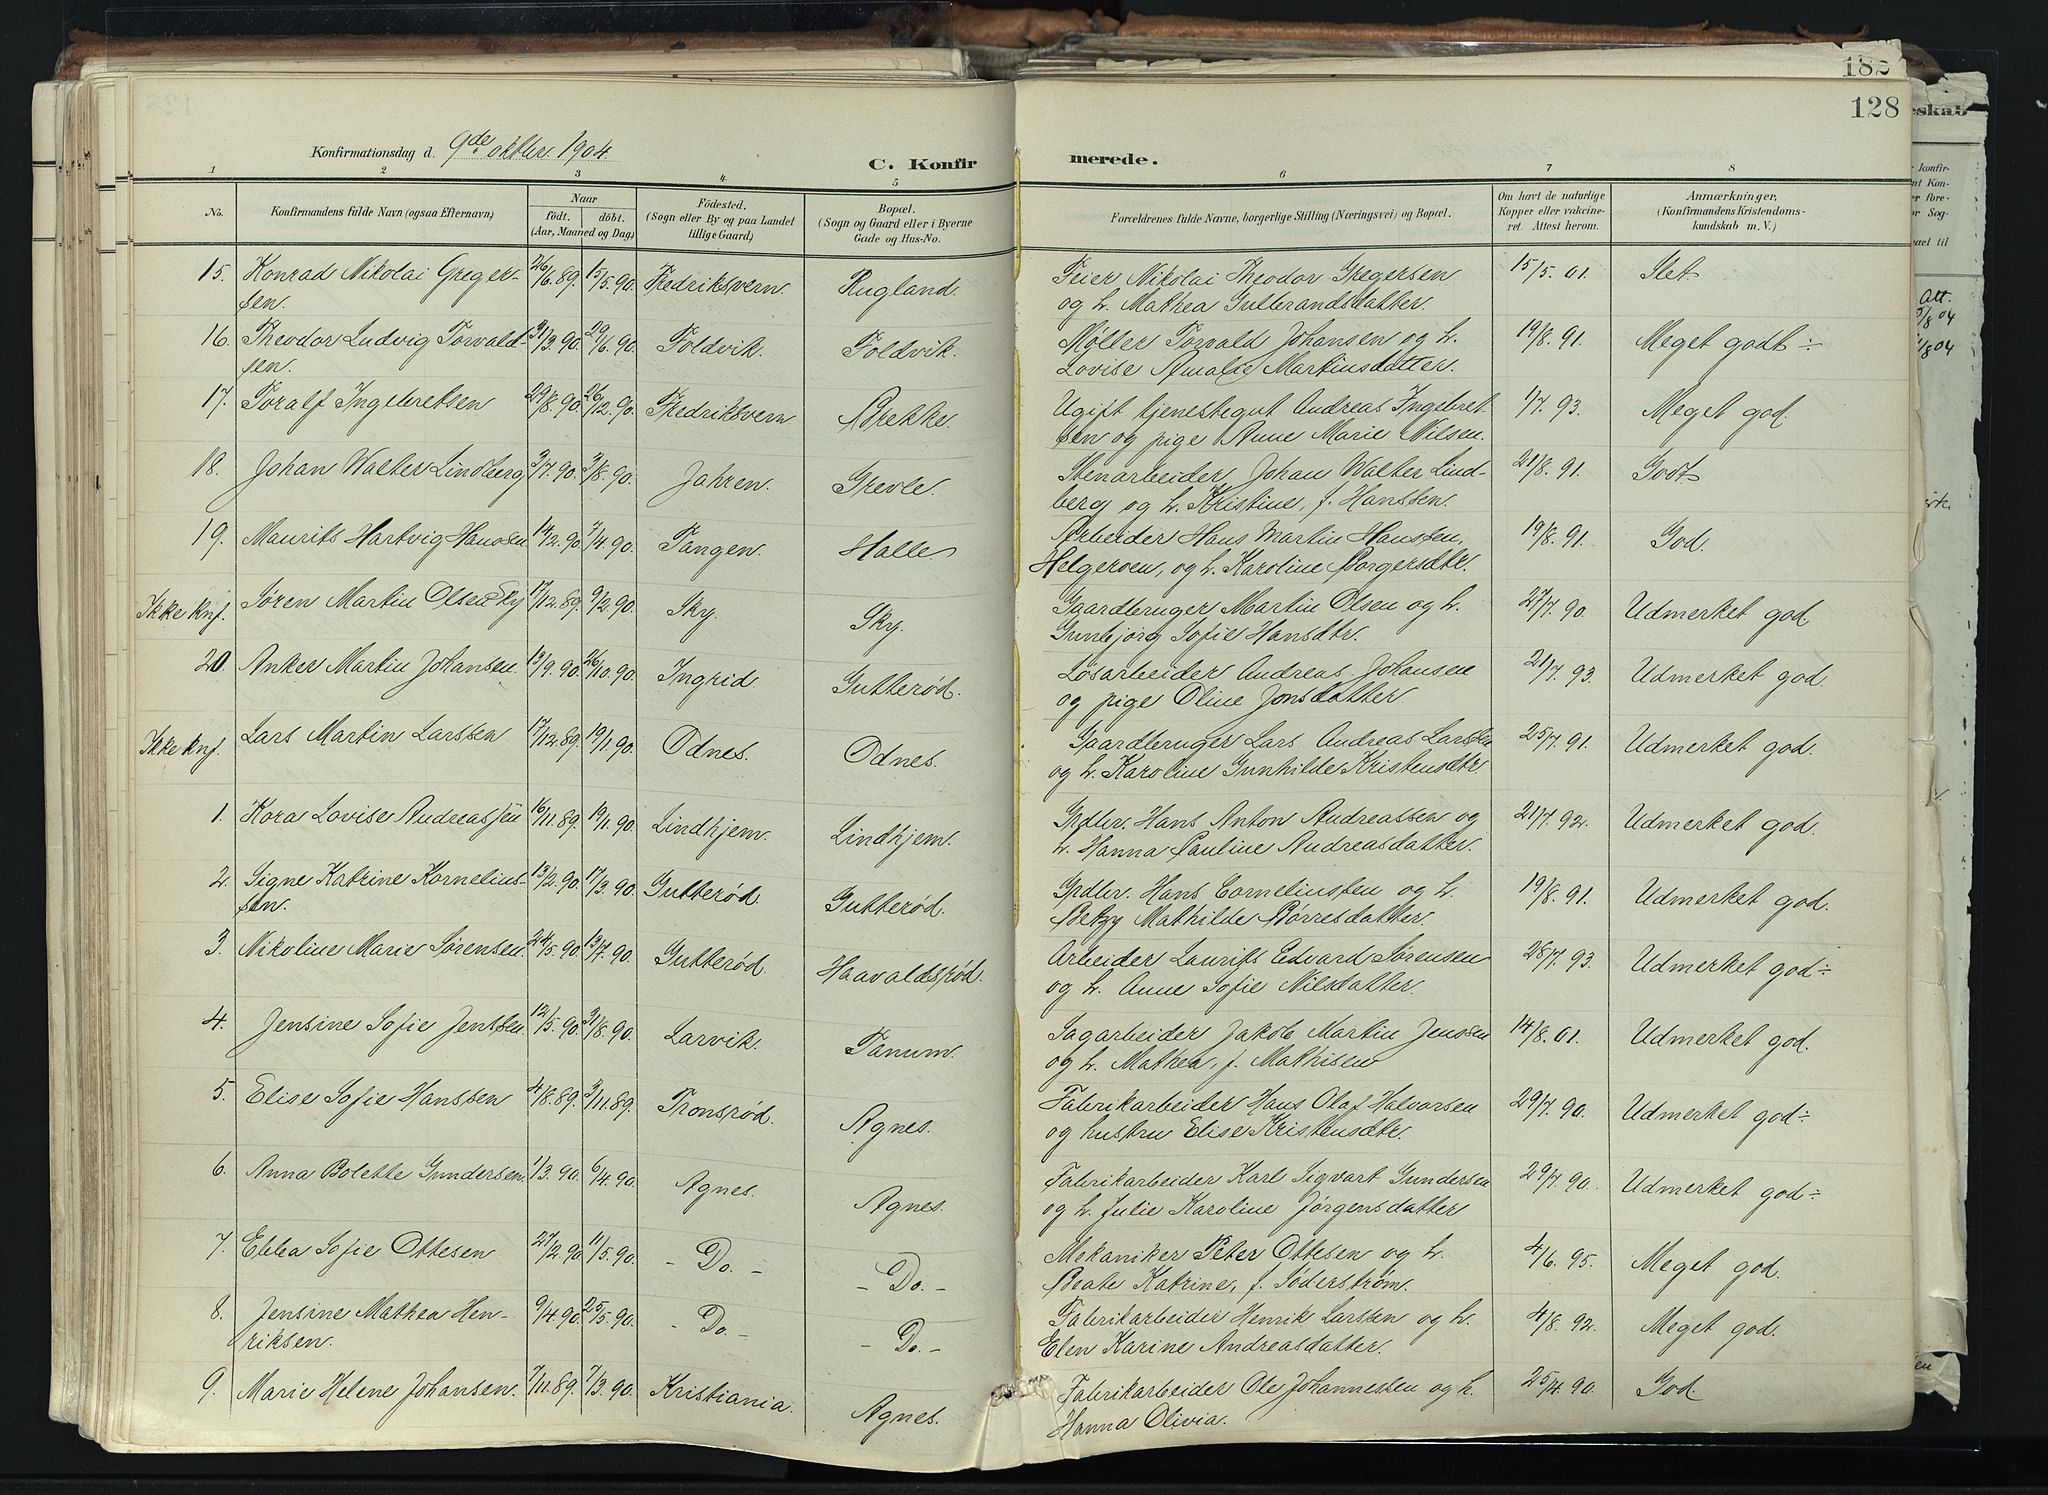 182
128
Konfirmationsdag d. 9de oktbr. 1904.
C. Konfirmerede.
1 2 3 4 5 6 7 8
No.
Konfirmandens fulde Navn (ogsaa Efternavn)
Naar
født. døbt.
(Aar, Maaned og Dag)
Fødested.
(Sogn eller By og paa Landet
tillige Gaard)
Bopæl.
(Sogn og Gaard eller i Byerne
Gade og Hus-No.
Forældrenes fulde Navne, borgerlige Stilling (Næringsvei) og Bopæl.
Om havt de naturlige
Kopper eller vakcine-
ret. Attest herom.
Anmærkninger.
(Konfirmandens Kristendoms-
kundskab m. V.)
15. Konrad Nikolai Greger- 26/6.89. 15/5.90. Fredriksvern Rugland. Feier Nikolai Theodor Gregersen 15/5.01. Slet
sen. og h. Mathea Gulbrandsdatter.
16. Theodor Ludvig Torvald- 31/3.90. 29/6.90. Foldvik. Foldvik. Møller Torvald Johansen og h. 19/8.91. Meget godt ÷
sen. Lovise Amalie Martinsdatter.
17. Toralf Ingebretsen 29/8.90. 26/12.90. Fredriksvern Brekke. Ugift tjenestegut Andreas Ingebret- 1/7.93. Meget god.
sen og pige Anne Marie Nilsen.
18. Johan Walter Lindberg 3/7.90. 3/8.90. Jahren. Grevle. Stenarbeider Johan Walter Lind- 21/8.91. Godt
berg og h. Kristine, f. Hanssen.
19. Maurits Hartvig Hanssen 14/2.90. 7/4.90. Tangen. Halle Arbeider Hans Martin Hanssen, 19/8.91. God.
Helgeroen, og h. Karoline Borgersdtr.
Ikke knf. Søren Martin Olsen Sky 17/12.89. 9/2.90. Sky. Sky. Gaardbruger Martin Olsen og h. 27/7.90. Udmerket god
Gunbjørg Sofie Hansdtr.
20 Anker Martin Johansen 13/9.90. 26/10.90. Ingrid Gutterød. Løsarbeider Andreas Johansen 21/7.93. Udmerket god.
og pige Oline Jonsdatter.
Ikke knf. Lars Martin Larssen 17/12.89. 19/1.90. Odnes. Odnes. Gaardbruger Lars Andreas Larssen 25/7.91. Udmerket god.
og h. Karoline Gunhilde Kristensdtr.
1. Kora Lovise Andreassen 16/11.89. 19/1.90. Lindhjem. Lindhjem. Gpdbr. Hans Anton Andreassen og 21/7.92. Udmerket god.
h. Hanna Pauline Andreasdatter.
2. Signe Katrine Kornelius- 13/2.90. 17/3.90. Gutterød. Gutterød. Gpdbr. Hans Corneliussen og h. 19/8.91. Udmerket god.
sen. Mathilde Børresdatter.
3. Nikoline Marie Sørensen. 24/5.90. 13/7.90. Gutterød. Haavaldsrød. Arbeider Laurits Edvard Sørensen 28/7.93. Udmerket god÷
og h. Anne Sofie Nilsdatter.
4. Jensine Sofie Jenssen. 12/5.90. 31/8.90. Larvik. Tanum. Sagarbeider Jakob Martin Jenssen 14/8.01. Udmerket god.
og h. Mathea, f. Mathisen
5. Elise Sofie Hanssen 4/8.89. 3/11.89. Tronsrød. Agnes. Fabrikarbeider Hans Olaf Halvorsen 29/7.90. Udmerket god÷
og hustru Elise Kristensdtr.
6. Anna Bolette Gundersen. 1/3.90. 6/4.90. Agnes. Agnes. Fabrikarbeider Karl Sigvart Gundersen 29/7.90. Udmerket god÷
og h. Julie Karoline Jørgensdatter
7. Ebba Sofie Ottesen 27/2.90. 11/5.90. - Do. - - Do. - Mekaniker Peter Ottesen og h. 4/6.95. Meget god.
Beate Katrine, f. Søderstrøm.
8. Jensine Mathea Hen- 9/4.90. 25/5.90. - Do. - - Do. - Fabrikarbeider Henrik Larssen og h. 4/8.92. Meget god.
riksen. Elen Karine Andreasdatter.
9. Marie Helene Johansen. 7/11.89. 7/3.90. Kristiania. Agnes. Fabrikarbeider Ole Johannessen og h. 25/4.90. God.
Hanna Olivia.